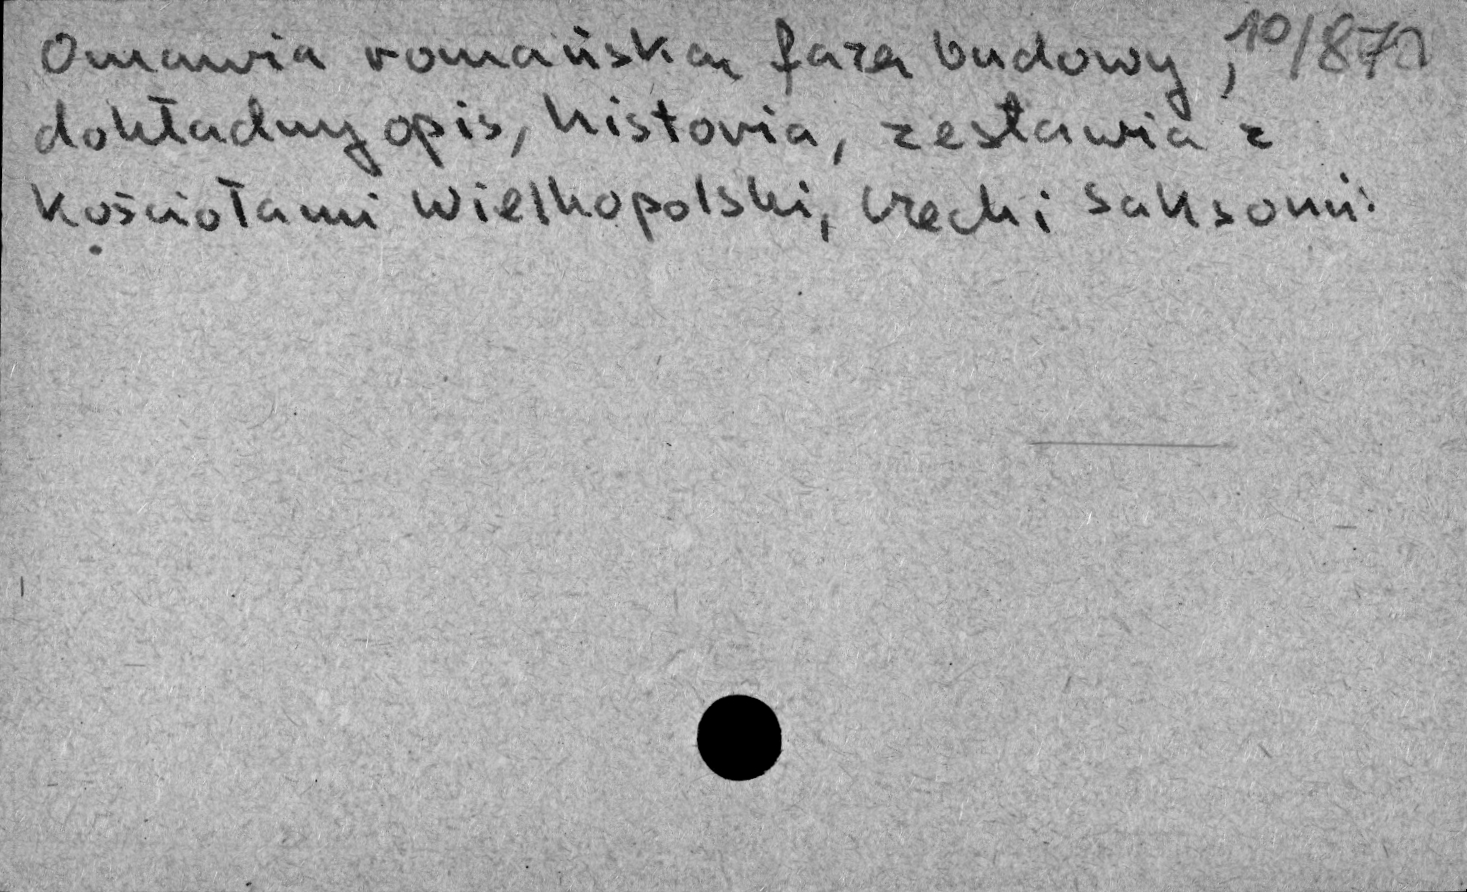 Omawia romańską fazę budowy, 10/870
dokładny opis, historia, zestawia z
kościołami Wielkopolski, Czech i Saksonii